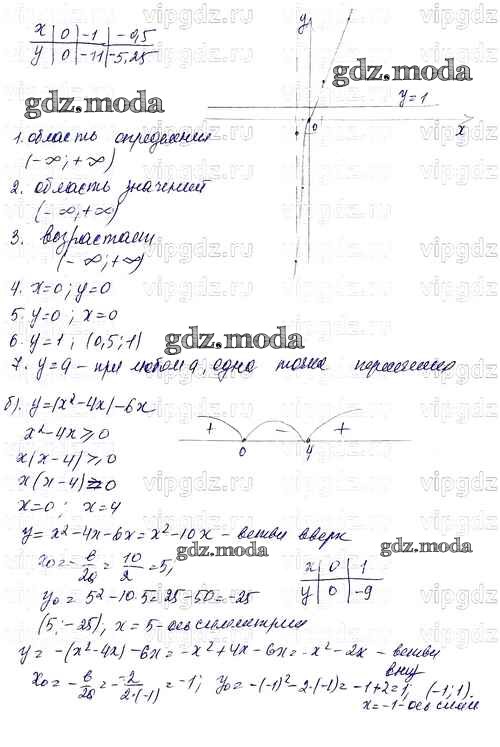 x | 0 | -1 | -0,5
y | 0 | -11 | -5,25
y
y=1
0
x
gdz.moda
gdz.moda
1. область определения
(-∞;+∞)
2. область значений
(-∞;+∞)
3. возрастает
(-∞;+∞)
4. x=0; y=0
5. y=0; x=0
6. y=1; (0,5;1)
gdz.moda
7. y=a - при любом a, одна точка пересечения
б). y=|x²-4x|-6x
+ - +
0 4
x²-4x⩾0
x(x-4)⩾0
x(x-4)=0
x=0; x=4
y=x²-4x-6x=x²-10x - ветви вверх
gdz.moda
gdz.moda
x₀=-в/2a=10/2=5;
x | 0 | 1
y | 0 | -9
y₀=5²-10·5=25-50=-25
(5;-25), x=5-ось симметрии
y=-(x²-4x)-6x=-x²+4x-6x=-x²-2x - ветви
вниз
x₀=-в/2a=--2/2·(-1)=-1; y₀=-(-1)²-2·(-1)=-1+2=1; (-1;1).
x=-1-ось симм
vipgdz.ru